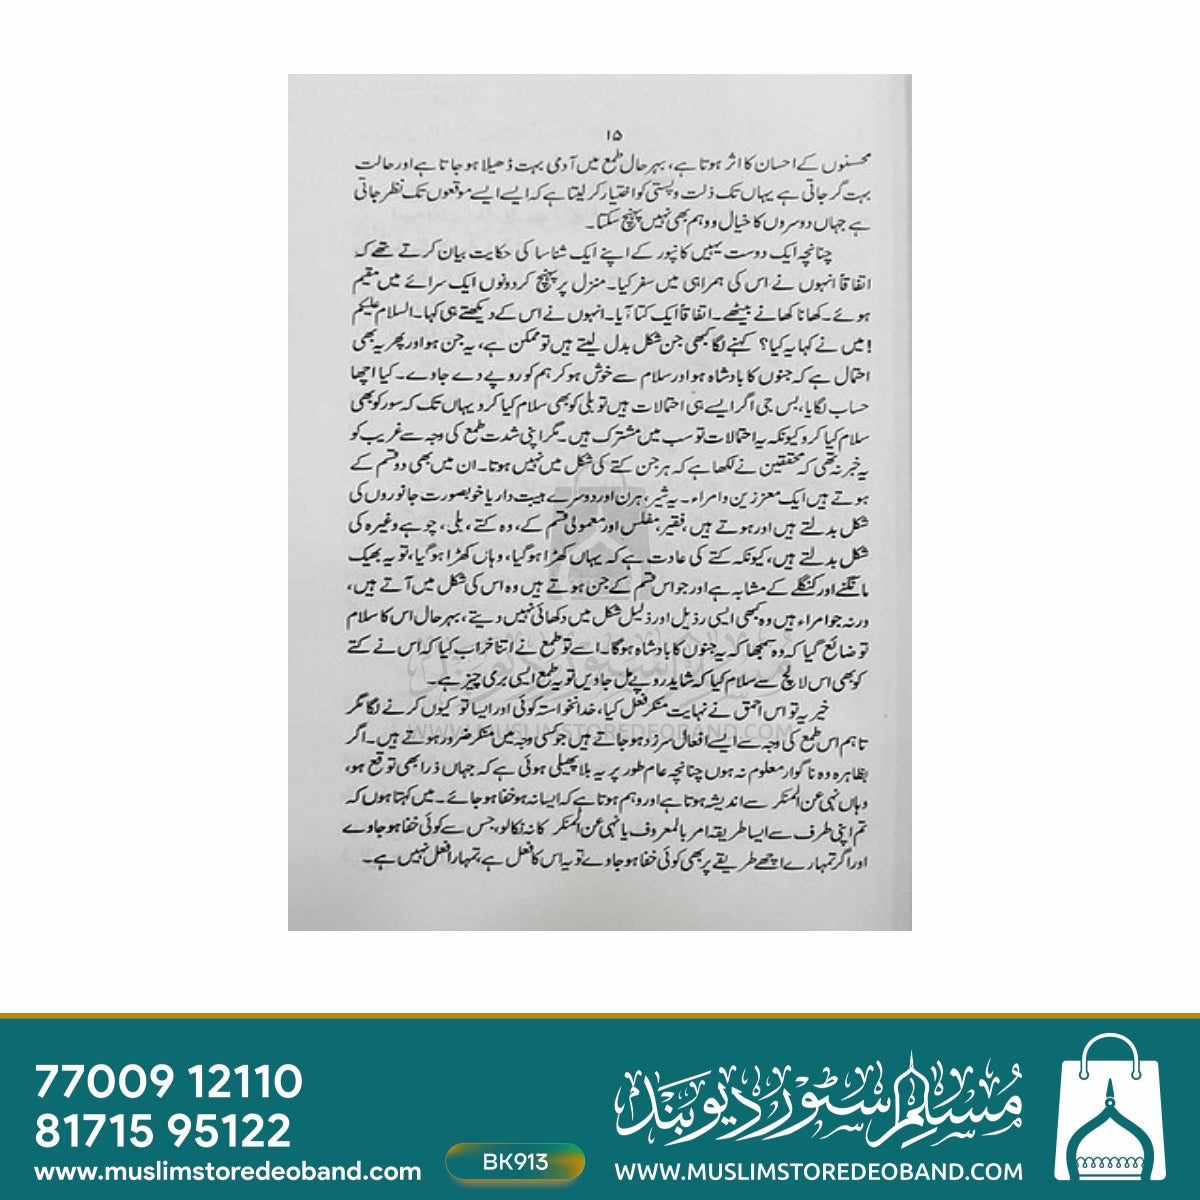 ۱۵
محسنوں کے احسان کا اثر ہوتا ہے، بہر حال طمع میں آدمی بہت ڈھیلا ہو جاتا ہے اور حالت
بہت گر جاتی ہے یہاں تک ذلت و پستی کو اختیار کر لیتا ہے کہ ایسے ایسے موقعوں تک نظر جاتی
ہے جہاں دوسروں کا خیال و وہم بھی نہیں پہنچ سکتا۔
چنانچہ ایک دوست یہیں کانپور کے اپنے ایک شناسا کی حکایت بیان کرتے تھے کہ
اتفاقاً انہوں نے اس کی ہمراہی میں سفر کیا۔ منزل پر پہنچ کر دونوں ایک سرائے میں مقیم
ہوئے۔ کھانا کھانے بیٹھے۔ اتفاقاً ایک کتا آیا۔ انہوں نے اس کے دیکھتے ہی کہا۔ السلام علیکم
! میں نے کہا یہ کیا؟ کہنے لگا کبھی جن شکل بدل لیتے ہیں تو ممکن ہے، یہ جن ہو اور پھر یہ بھی
احتمال ہے کہ جنوں کا بادشاہ ہو اور سلام سے خوش ہو کر ہم کو روپے دے جاوے۔ کیا اچھا
حساب لگایا، بس جی اگر ایسے ہی احتمالات ہیں تو بلی کو بھی سلام کیا کرو یہاں تک کہ سور کو بھی
سلام کیا کرو کیونکہ یہ احتمالات تو سب میں مشترک ہیں۔ مگر اپنی شدت طمع کی وجہ سے غریب کو
یہ خبر نہ تھی کہ محققین نے لکھا ہے کہ ہر جن کتے کی شکل میں نہیں ہوتا۔ ان میں بھی دو قسم کے
ہوتے ہیں ایک معززین و امراء۔ یہ شیر، ہرن اور دوسرے ہیبت دار یا خوبصورت جانوروں کی
شکل بدلتے ہیں اور ہوتے ہیں، فقیر، مفلس اور معمولی قسم کے، وہ کتے، بلی، چوہے وغیرہ کی
شکل بدلتے ہیں، کیونکہ کتے کی عادت ہے کہ یہاں کھڑا ہو گیا، وہاں کھڑا ہو گیا، تو یہ بھیک
مانگنے اور کنگلے کے مشابہ ہے اور جو اس قسم کے جن ہوتے ہیں وہ اس کی شکل میں آتے ہیں،
ورنہ جو امراء ہیں وہ کبھی ایسی رذیل اور ذلیل شکل میں دکھائی نہیں دیتے، بہر حال اس کا سلام
تو ضائع گیا کہ وہ سمجھا کہ یہ جنوں کا بادشاہ ہوگا۔ اسے تو طمع نے اتنا خراب کیا کہ اس نے کتے
کو بھی اس لالچ سے سلام کیا کہ شاید روپے مل جاویں تو یہ طمع ایسی بری چیز ہے۔
خیر یہ تو اس احمق نے نہایت منکر فعل کیا، خدانخواستہ کوئی اور ایسا تو کیوں کرنے لگا مگر
تاہم اس طمع کی وجہ سے ایسے افعال سرزد ہو جاتے ہیں جو کسی وجہ میں منکر ضرور ہوتے ہیں۔ اگر
بظاہر وہ ناگوار معلوم نہ ہوں چنانچہ عام طور پر یہ بلا پھیلی ہوئی ہے کہ جہاں ذرا بھی توقع ہو،
وہاں نہی عن المنکر سے اندیشہ ہوتا ہے اور وہم ہوتا ہے کہ ایسا نہ ہو خفا ہو جائے۔ میں کہتا ہوں کہ
تم اپنی طرف سے ایسا طریقہ امر بالمعروف یا نہی عن المنکر کا نہ نکالو، جس سے کوئی خفا ہو جاوے
اور اگر تمہارے اچھے طریقے پر بھی کوئی خفا ہو جاوے تو یہ اس کا فعل ہے، تمہارا فعل نہیں ہے۔
مسلم سٹور دیوبند
WWW.MUSLIMSTOREDEOBAND.COM
77009 12110
81715 95122
www.muslimstoredeoband.com
BK913
مسلم سٹور دیوبند
WWW.MUSLIMSTOREDEOBAND.COM